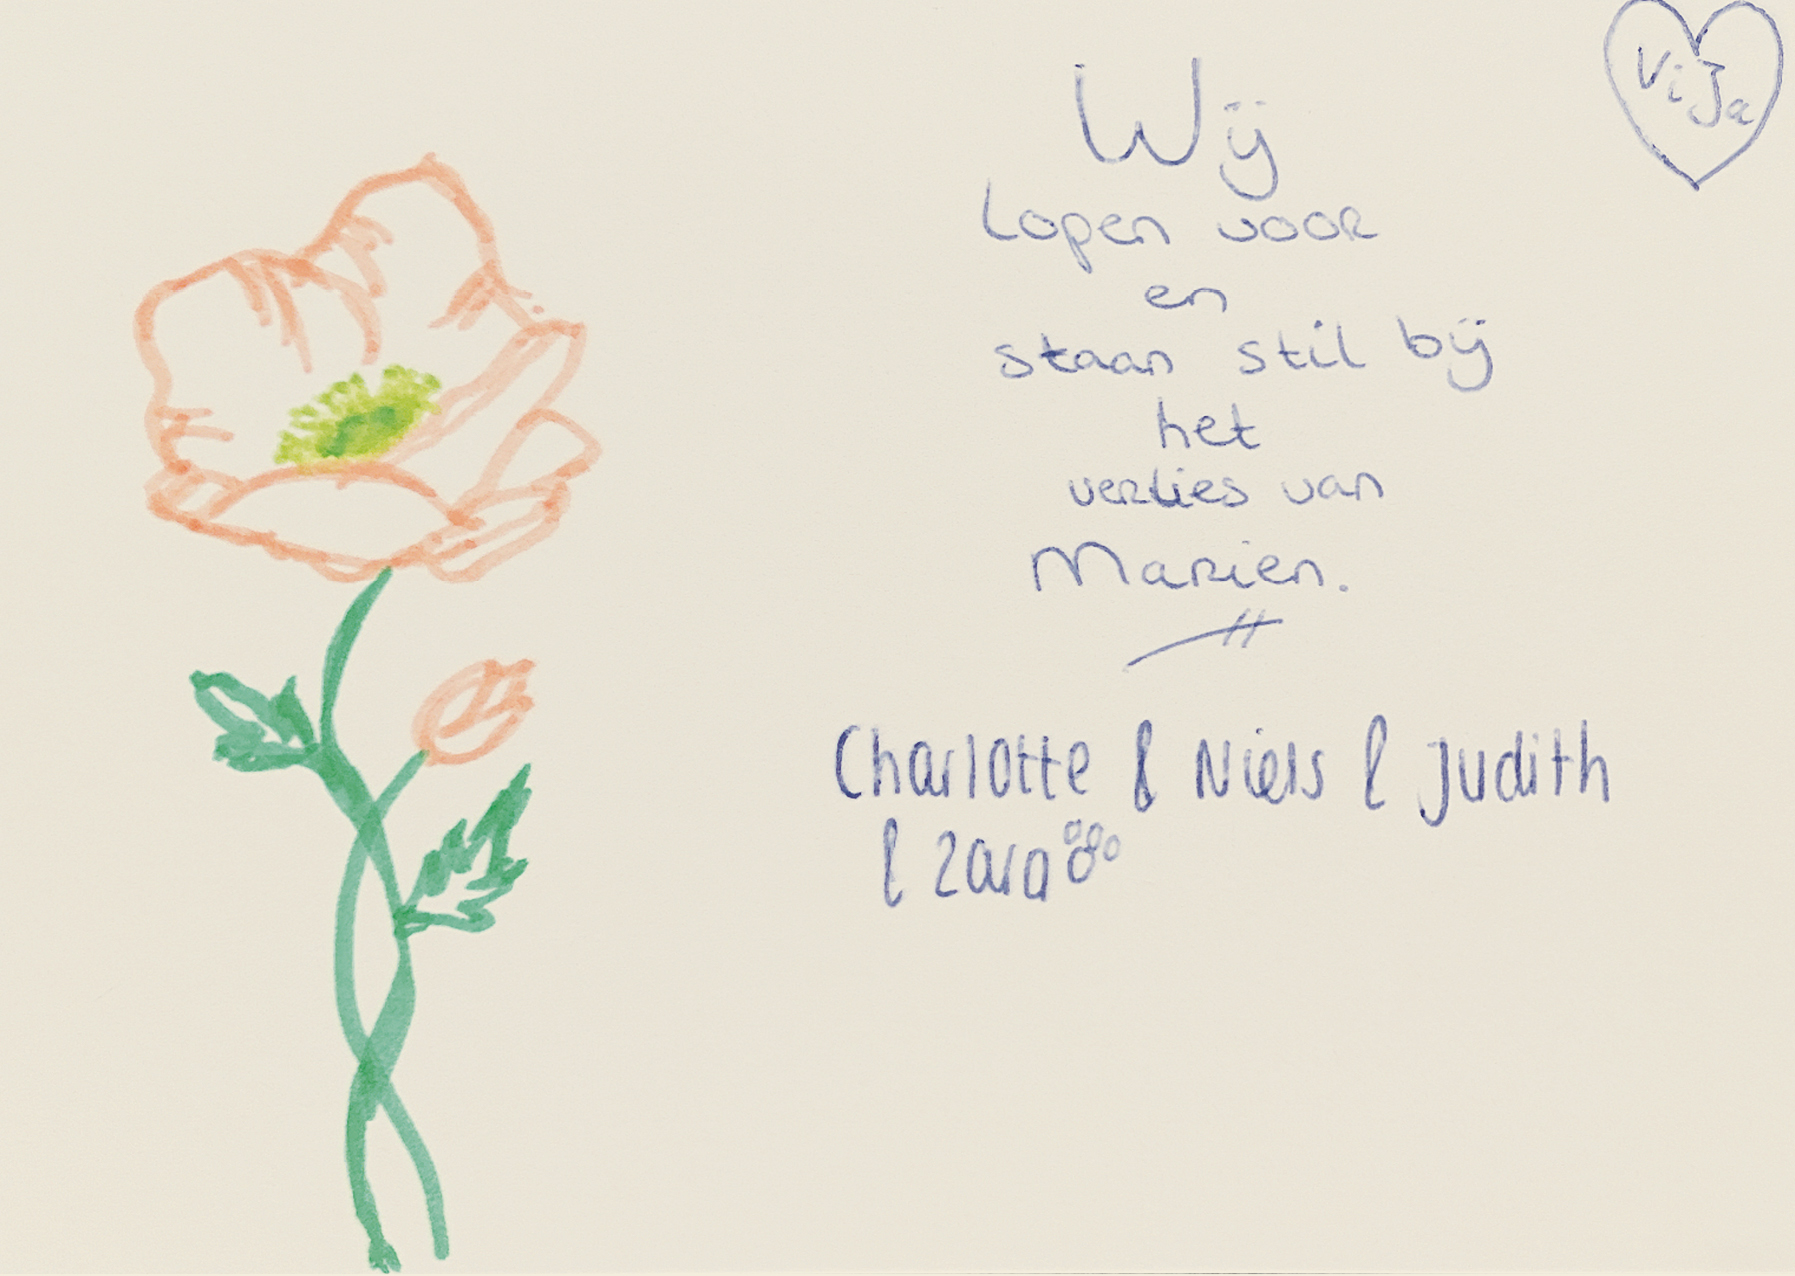 ViJa
Wij
Lopen voor
en
staan stil bij
het
verlies van
Marien.
Charlotte & Niels & Judith
& Zara